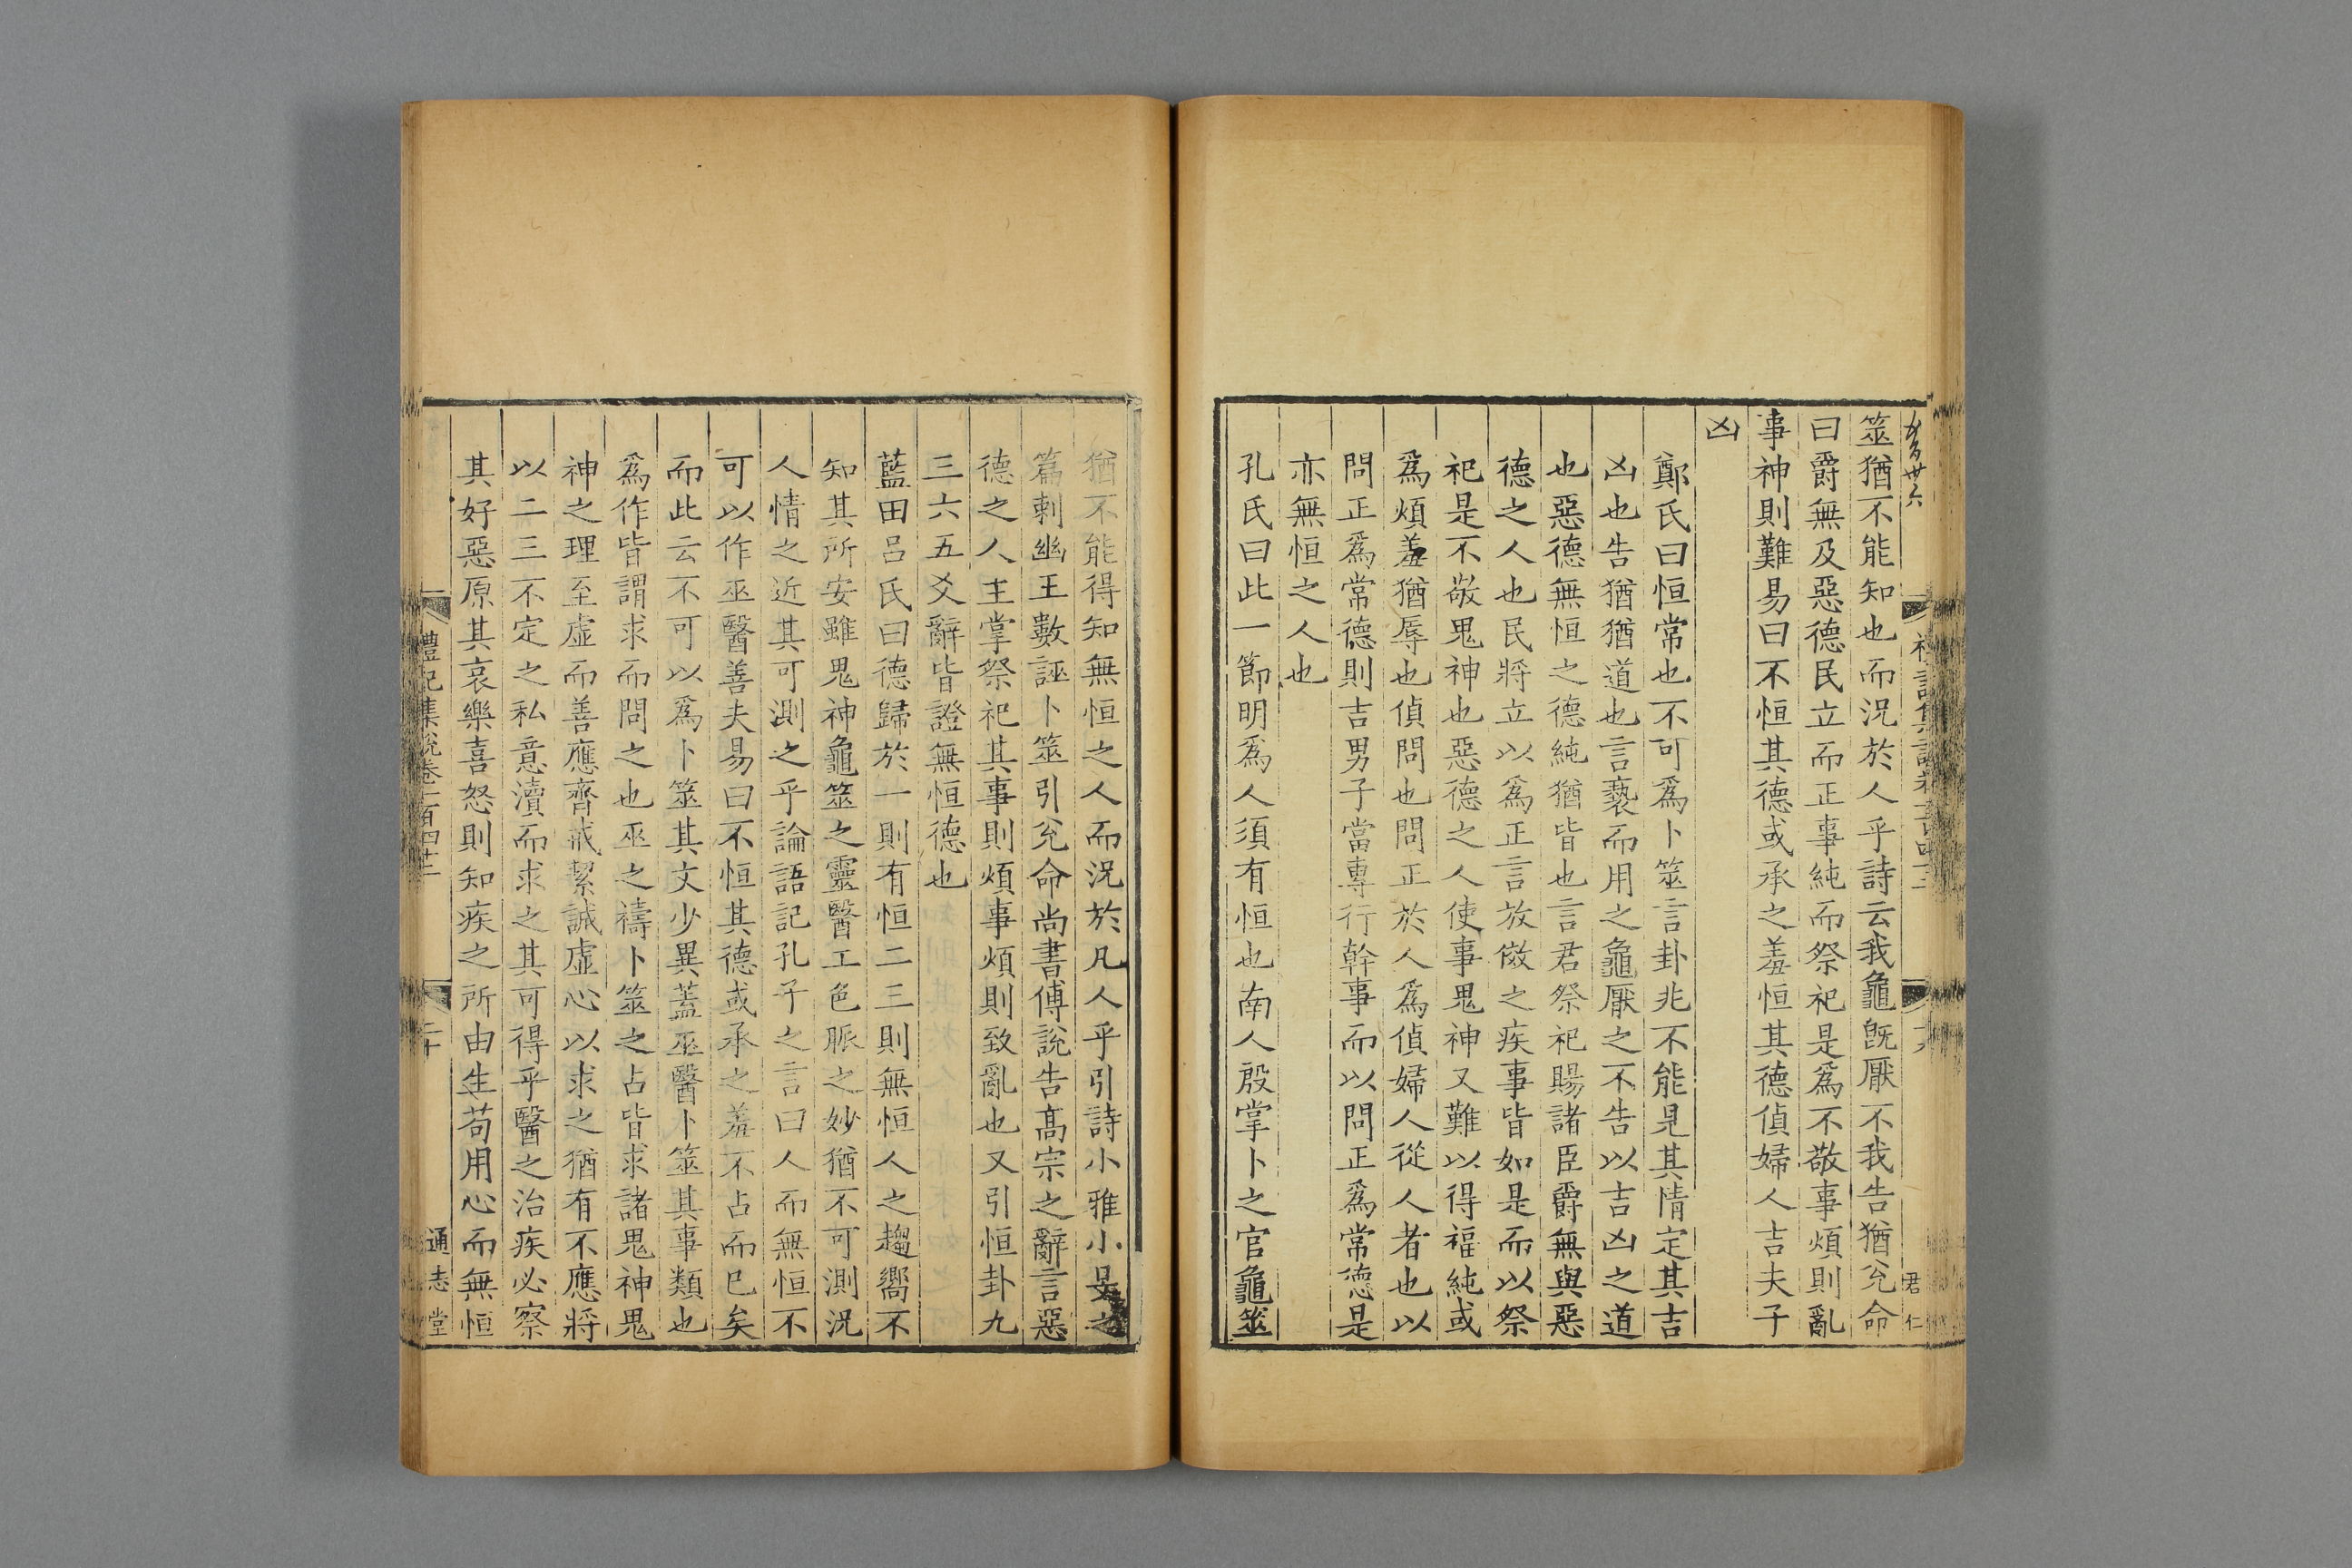 筮猶不能知也而況於人乎詩云我龜旣厭不我告猶兊命
曰爵無及惡德民立而正事純而祭祀是爲不敬事煩則亂
事神則難易曰不恒其德或承之羞恒其德偵婦人吉夫子
凶
鄭氏曰恒常也不可爲卜筮言卦兆不能見其情定其吉
凶也告猶猶道也言褻而用之龜厭之不告以吉凶之道
也惡德無恒之德純猶皆也言君祭祀賜諸臣爵無與惡
德之人也民將立以爲正言放傚之疾事皆如是而以祭
祀是不敬鬼神也惡德之人使事鬼神又難以得福純或
爲煩羞猶辱也偵問也問正於人爲偵婦人從人者也以
問正爲常德則吉男子當專行幹事而以問正爲常德是
亦無恒之人也
孔氏曰此一節明爲人須有恒也南人殷掌卜之官龜筮
君仁
猶不能得知無恒之人而況於凡人乎引詩小雅小旻之
篇刺幽王數誣卜筮引兊命尚書傅說告高宗之辭言惡
德之人主掌祭祀其事則煩事煩則致亂也又引恒卦九
三六五爻辭皆證無恒德也
藍田呂氏曰德歸於一則有恒二三則無恒人之趨嚮不
知其所安雖鬼神龜筮之靈醫工色脈之妙猶不可測況
人情之近其可測之乎論語記孔子之言曰人而無恒不
可以作巫醫善夫易曰不恒其德或承之羞不占而已矣
而此云不可以爲卜筮其文少異蓋巫醫卜筮其事類也
爲作皆謂求而問之也巫之禱卜筮之占皆求諸鬼神鬼
神之理至虛而善應齊戒絜誠虛心以求之猶有不應將
以二三不定之私意瀆而求之其可得乎醫之治疾必察
其好惡原其哀樂喜怒則知疾之所由生苟用心而無恒
禮記集說卷一百四十二
二十
通志堂